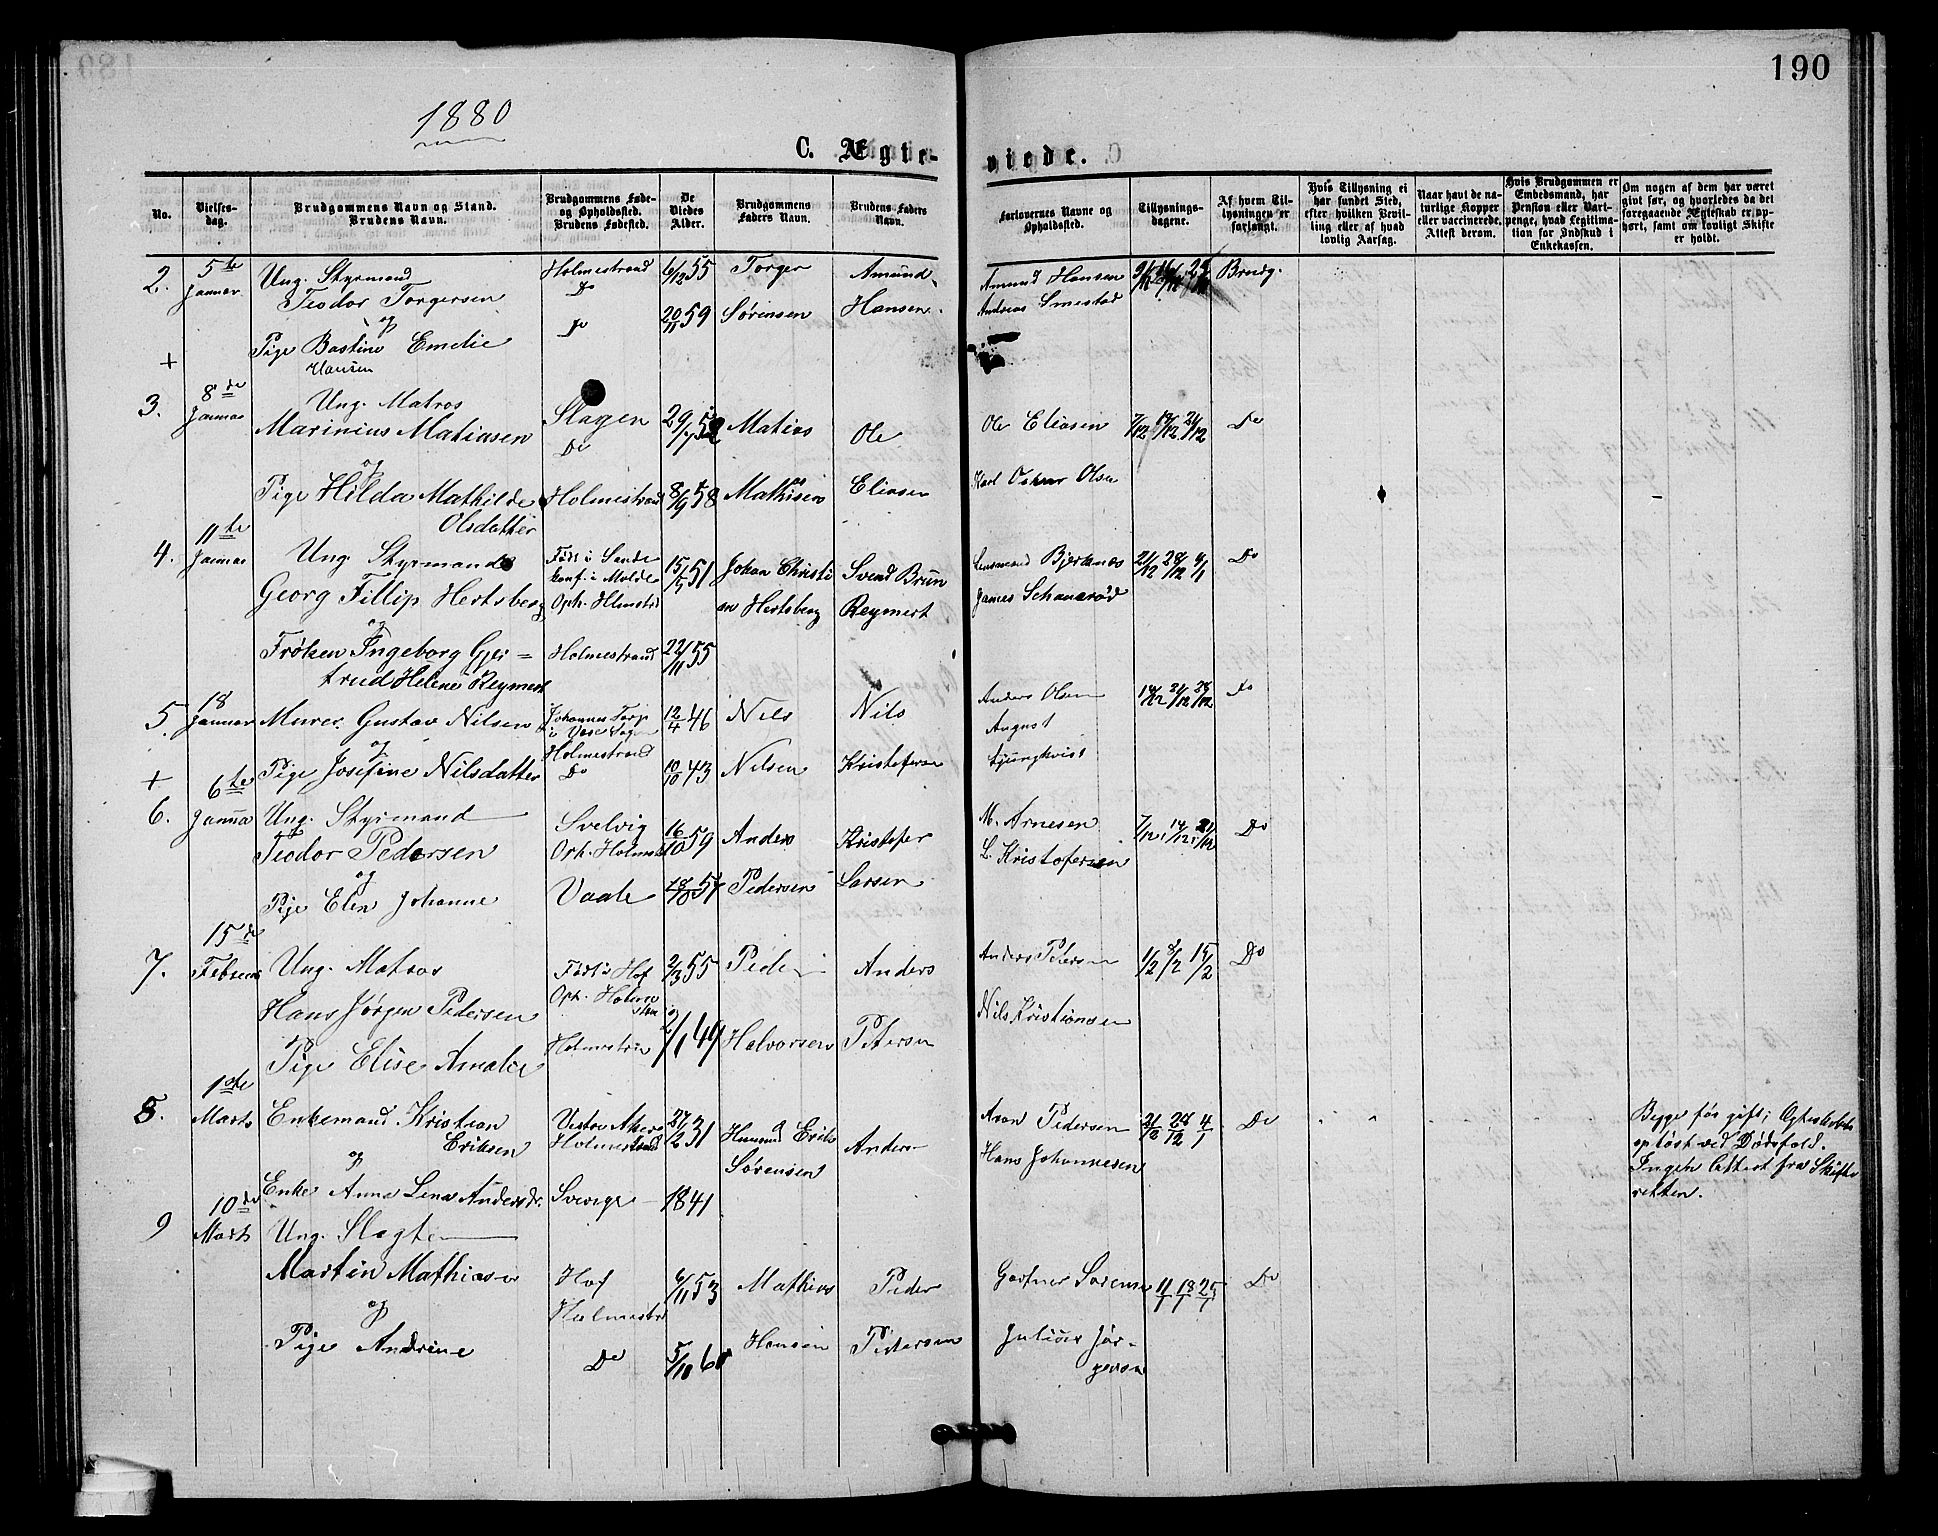 190
1880
C. Ægte-
viede.
No.
Vielses-
dag.
Brudgommens Navn og Stand.
Brudens Navn.
Brudgommens Føde-
og Opholdssted.
Brudens Fødested.
De
Viedes
Alder.
Brudgommens
Faders Navn.
Brudens Faders
Navn.
Forlovernes Navne og
Opholdssted.
Tillysnings-
dagene.
Af hvem Til-
lysningen er
forlangt.
Hvis Tillysning ei
har fundet Sted,
efter hvilken Bevil-
ling eller af hvad
lovlig Aarsag.
Naar havt de na-
turlige Kopper
eller vaccinerede.
Attest derom.
Hvis Brudgommen er
Embedsmand, har
Pension eller Vart-
penge, hvad Legitima-
tion for Indskud i
Enkekassen.
Om nogen af dem har været
givt før, og hvorledes da det
foregaaende Ægteskab er op-
hørt, samt om lovligt Skifte
er holdt.
2. 5te Januar
Ung. Styrmand
Teodor Torgersen
og
Pige Bastine Emelie
Hansen
Holmestrand
Do
Do
6/12 55
20/11 59
Torger
Sørensen
Amund
Hansen
Amund Hansen
Andreas Smestad
Brudg.
+
3. 8de Januar
Ung. Matros
Marinius Matiasen
og
Pige Hilda Mathilde
Olsdatter
Slagen
Do
Holmestrand
29/7 52
8/9 58
Matias
Mathisen
Ole
Eliasen
Ole Eliasen
Karl Oskar Olsen
7/12 14/12 21/12
Do
4. 11te Januar
Ung. Styrmand
Georg Fillip Hertsberg
og
Frøken Ingeborg Gjer=
trud Helene Reymert
Født i Sande
konf. i Molde
Oph. Holmstr
Holmestrand
15/5 51
22/11 55
Johan Christi
an Hertsberg
Svend Brun
Reymert
Lensmand Bjerknes
James Schanerød
21/12 28/12 4/1
Do
5. 18 Januar
Murer Gustav Nilsen
og
Pige Josefine Nilsdatter
Johannes Torp
Holmestrand
Do
12/4 46
10/10 43
Nils
Nilsen
Nils
Kristofersen
Anders Olsen
August
Ljungkvist
14/12 21/12 28/12
Do
+
6. 6te Janua
Ung. Styrmand
Teodor Pedersen
og
Pige Elen Johanne
Svelvig
Oph. Holmestr
Vaale
16/10 59
57
Anders
Pedersen
Kristofer
Larsen
M. Arnesen
L. Kristofersen
7/12 14/12 21/12
Do
7. 15de Februar
Ung. Matros
Hans Jørgen Pedersen
og
Pige Elise Amalie
Født i Hof
Oph. Holme
stra
Holmestran
2/3 55
2/1 49
Peder
Halvorsen
Anders
Petersen
Anders Petersen
Nils Kristiansen
1/2 8/2 15/2
Do
8. 1ste Marts
Enkemand Kristian
Eriksen
og
Enke Anna Lena Andersdr.
Vestre Akers
Holmestrand
Sverige
27/12 31
1841
Erik
Sørensen
Anders
Aron Pedersen
Hans Johannesen
21/12 28/12 4/1
Do
Begge før gift; Egteskabet
opløst ved Dødsfald.
Ingen Attest fra Skifte
retten.
9 10de Marts
Ung. Slagter
Martin Mathiasen
og
Pige Andrine
Hof
Holmestr
Do
6/11 53
5/10 60
Mathias
Hansen
Peder
Petersen
Gartner Sørensen
Julius Jør-
gensen
11/1 18/1 25/1
Do